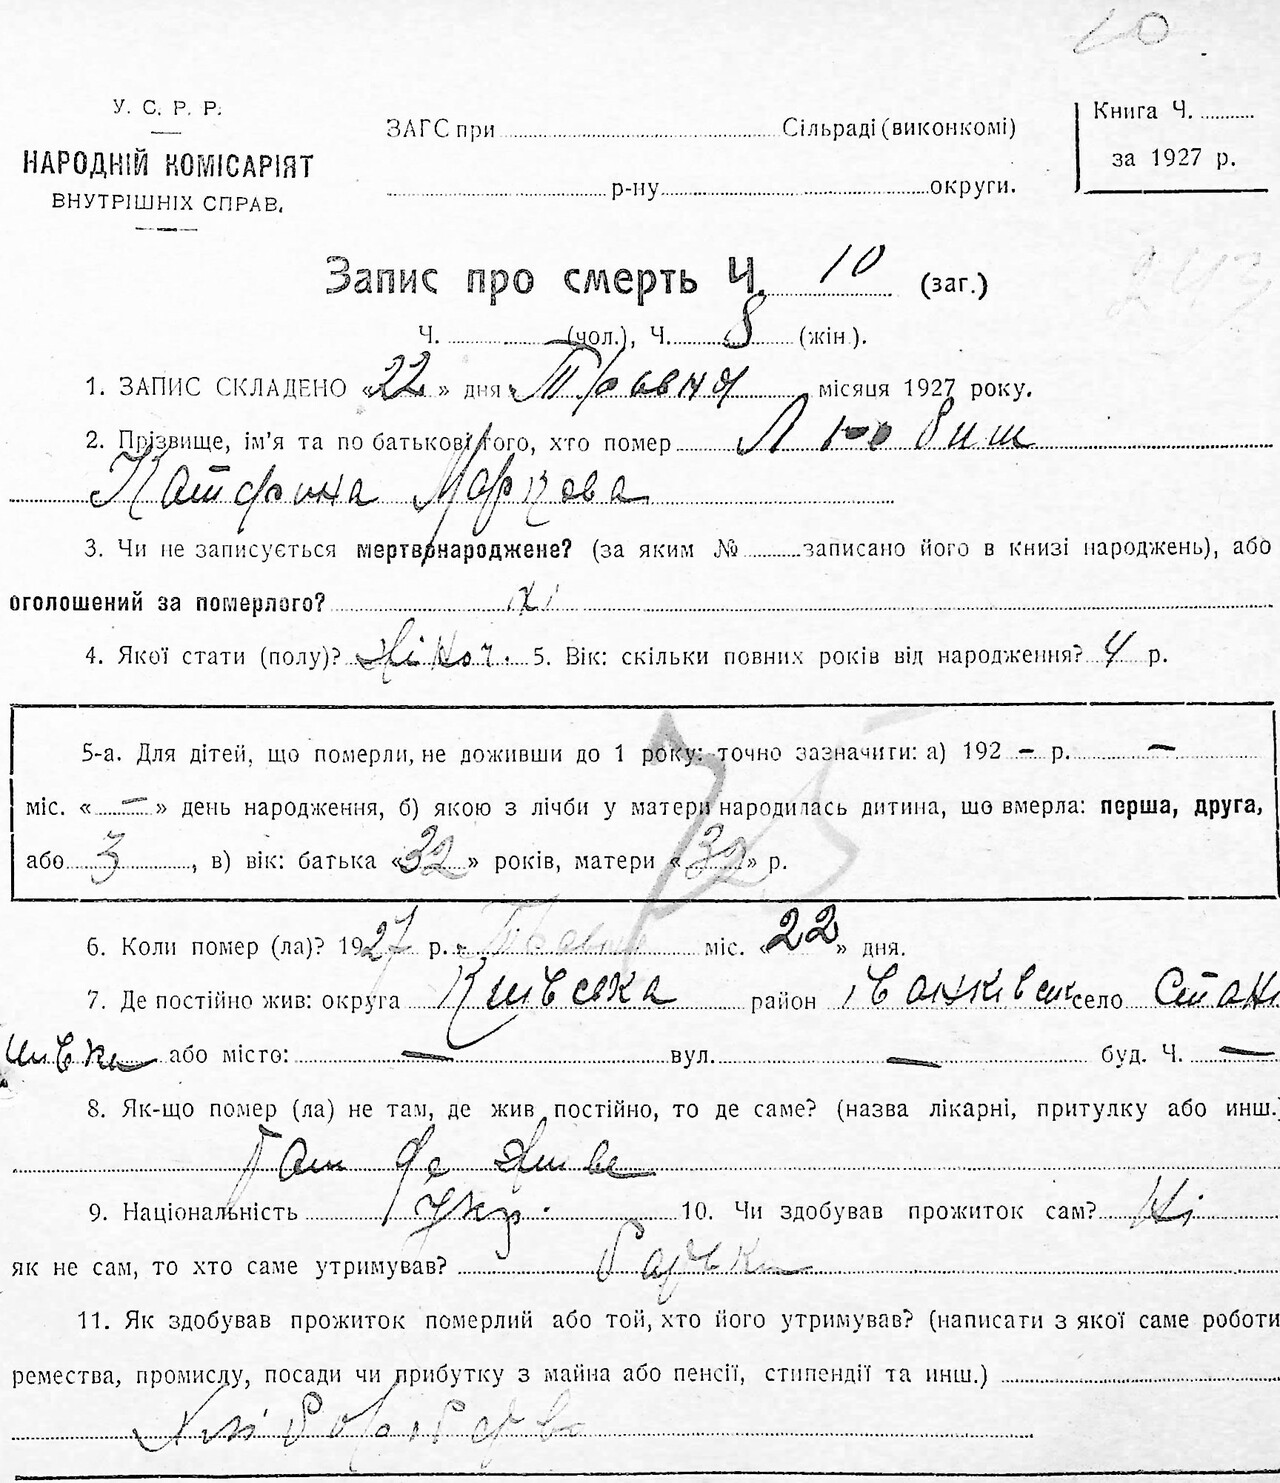 10
У. С. Р. Р.
НАРОДНІЙ КОМІСАРІЯТ
ВНУТРІШНІХ СПРАВ.
ЗАГС при Сільраді (виконкомі)
р-ну округи.
Книга Ч.
за 1927 р.
243
Запис про смерть Ч. 10 (заг.)
Ч. (чол.), Ч. 8 (жін.).
1. ЗАПИС СКЛАДЕНО «22» дня Травня місяця 1927 року.
2. Прізвище, ім'я та по батькові того, хто помер Любиш
Катерина Маркова
3. Чи не записується мертвонароджене? (за яким № записано його в книзі народжень), або
оголошений за померлого? ні
4. Якої стати (полу)? жіноч. 5. Вік: скільки повних років від народження? 4 р.
5-а. Для дітей, що померли, не доживши до 1 року: точно зазначити: а) 192 – р. –
міс. « – » день народження, б) якою з лічби у матери народилась дитина, що вмерла: перша, друга,
або 3, в) вік: батька «32» років, матери «32» р.
6. Коли помер (ла)? 1927 р. Травня міс. «22» дня.
7. Де постійно жив: округа Київська район село
або місто: – вул. – буд. Ч. –
8. Як-що помер (ла) не там, де жив постійно, то де саме? (назва лікарні, притулку або инш.)
Там де живе
9. Національність Укр. 10. Чи здобував прожиток сам? Ні
як не сам, то хто саме утримував? батьки
11. Як здобував прожиток померлий або той, хто його утримував? (написати з якої саме роботи
ремества, промислу, посади чи прибутку з майна або пенсії, стипендії та инш.)
Хліборобство